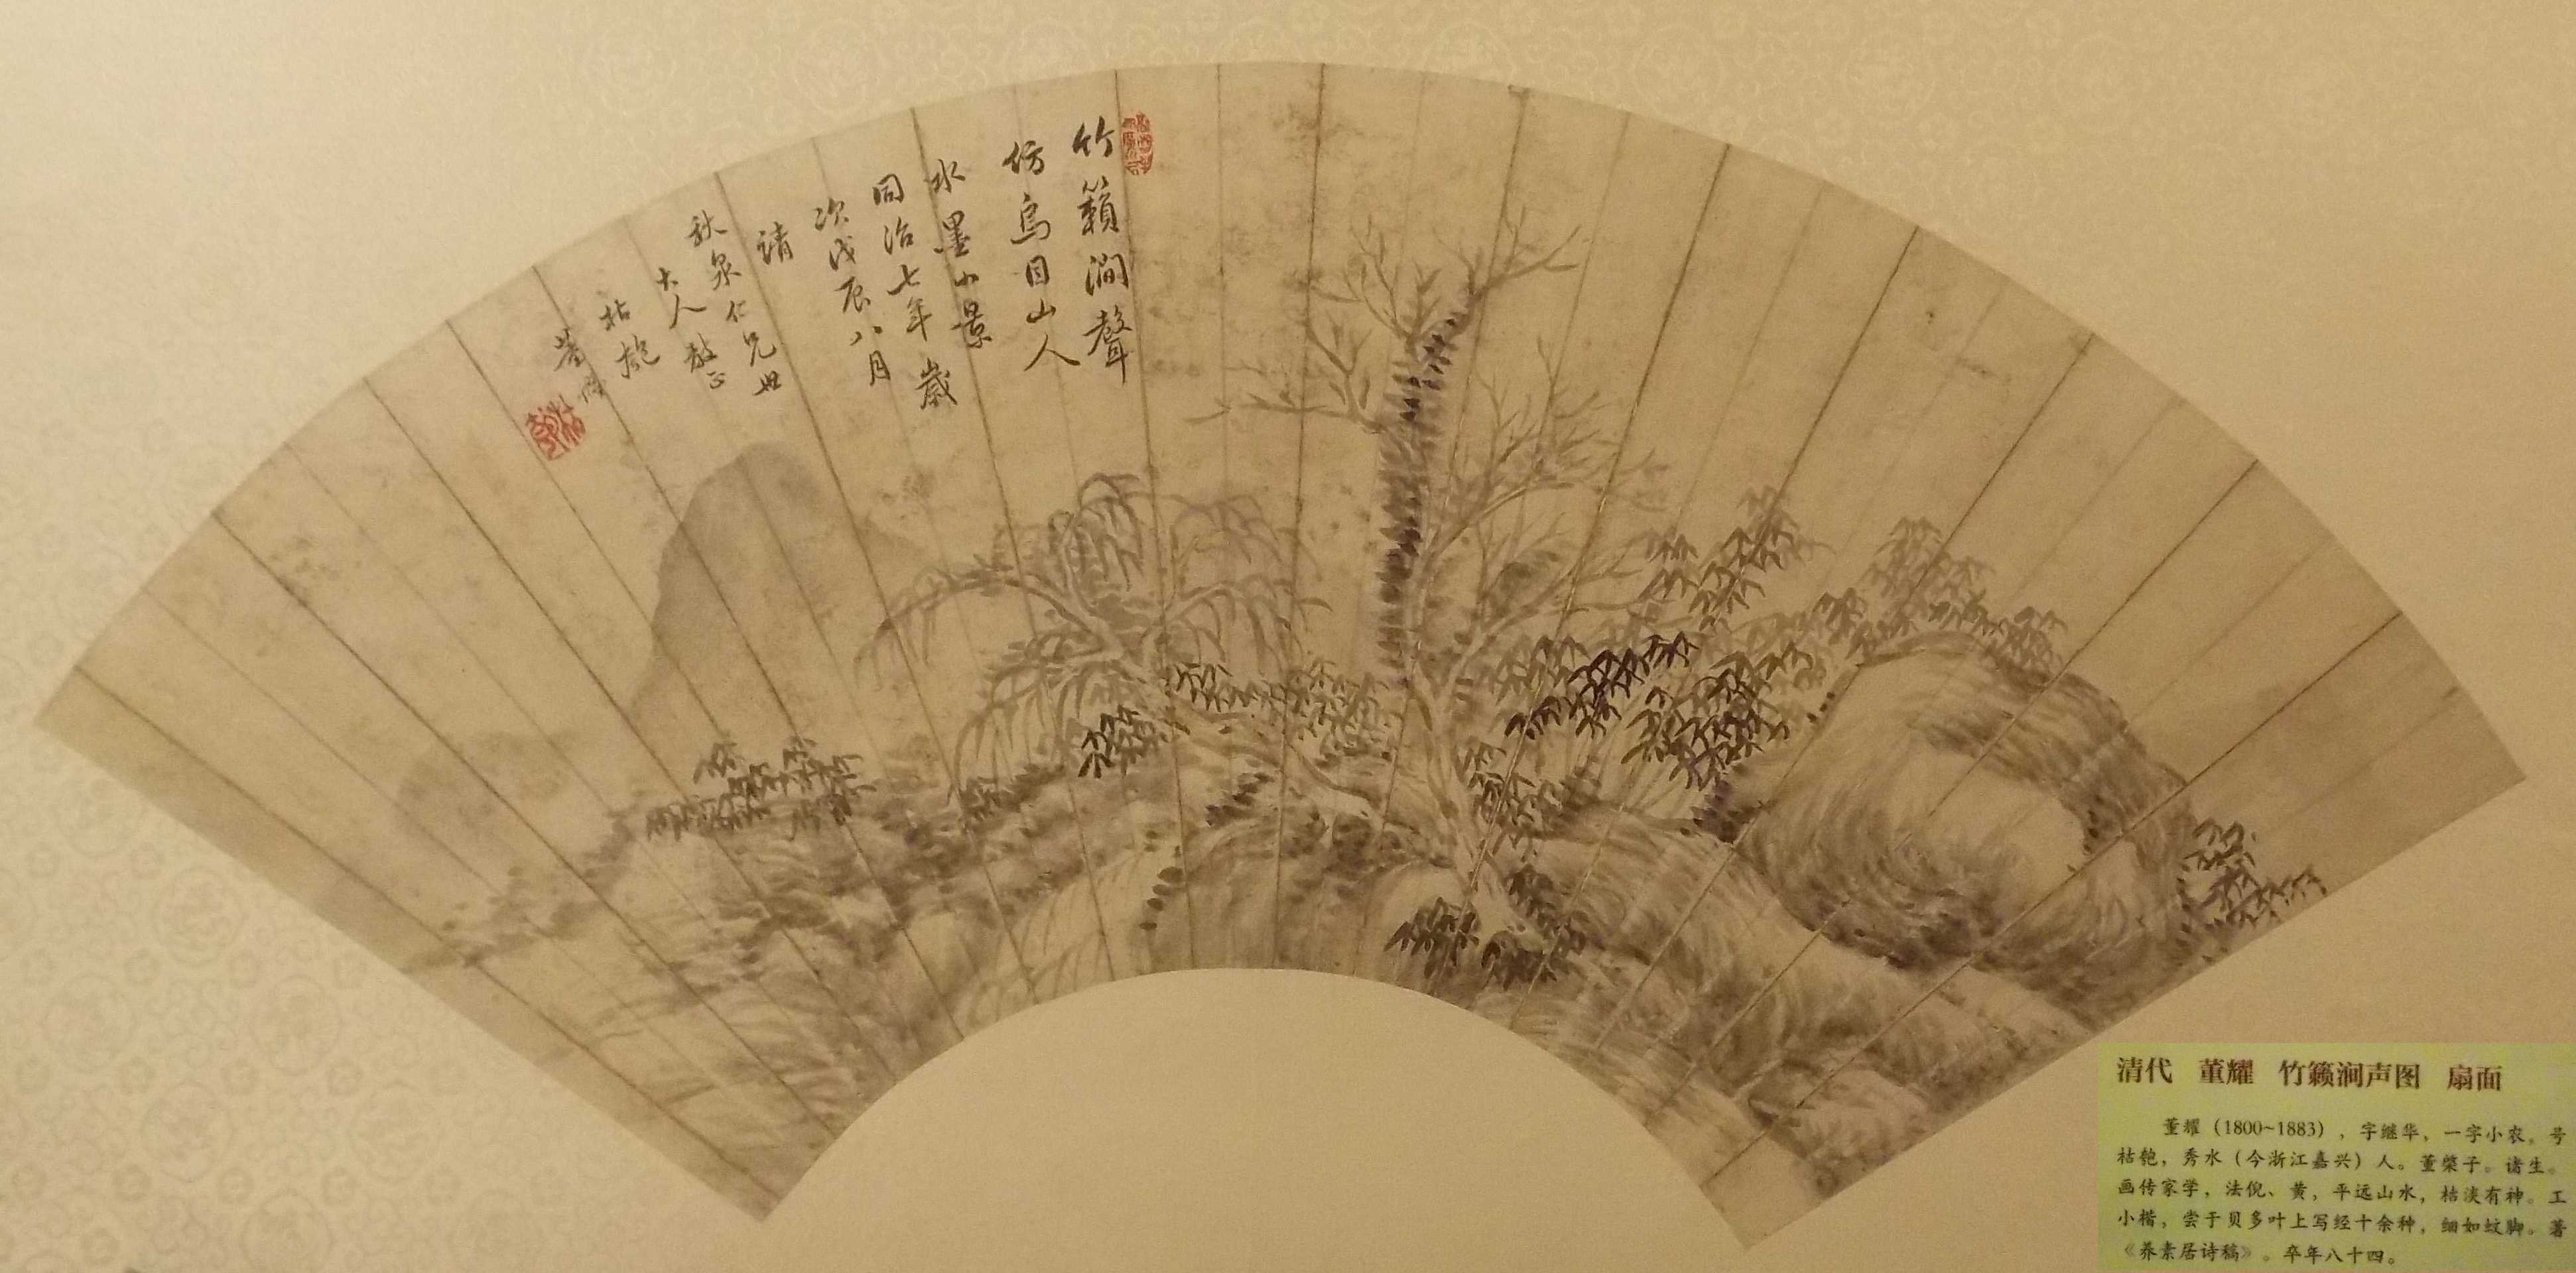 竹籟澗聲
仿烏目山人
水墨小景
同治七年歲
次戊辰八月
請
秋泉仁兄世
大人教正
枯匏
董燿
枯匏
清代 董耀 竹籁涧声图 扇面
董耀（1800~1883），字继华，一字小农。号
枯匏，秀水（今浙江嘉兴）人。董棨子。诸生。
画传家学，法倪、黄，平远山水，枯淡有神。工
小楷，尝于贝多叶上写经十余种，细如蚊脚。著
《养素居诗稿》。卒年八十四。